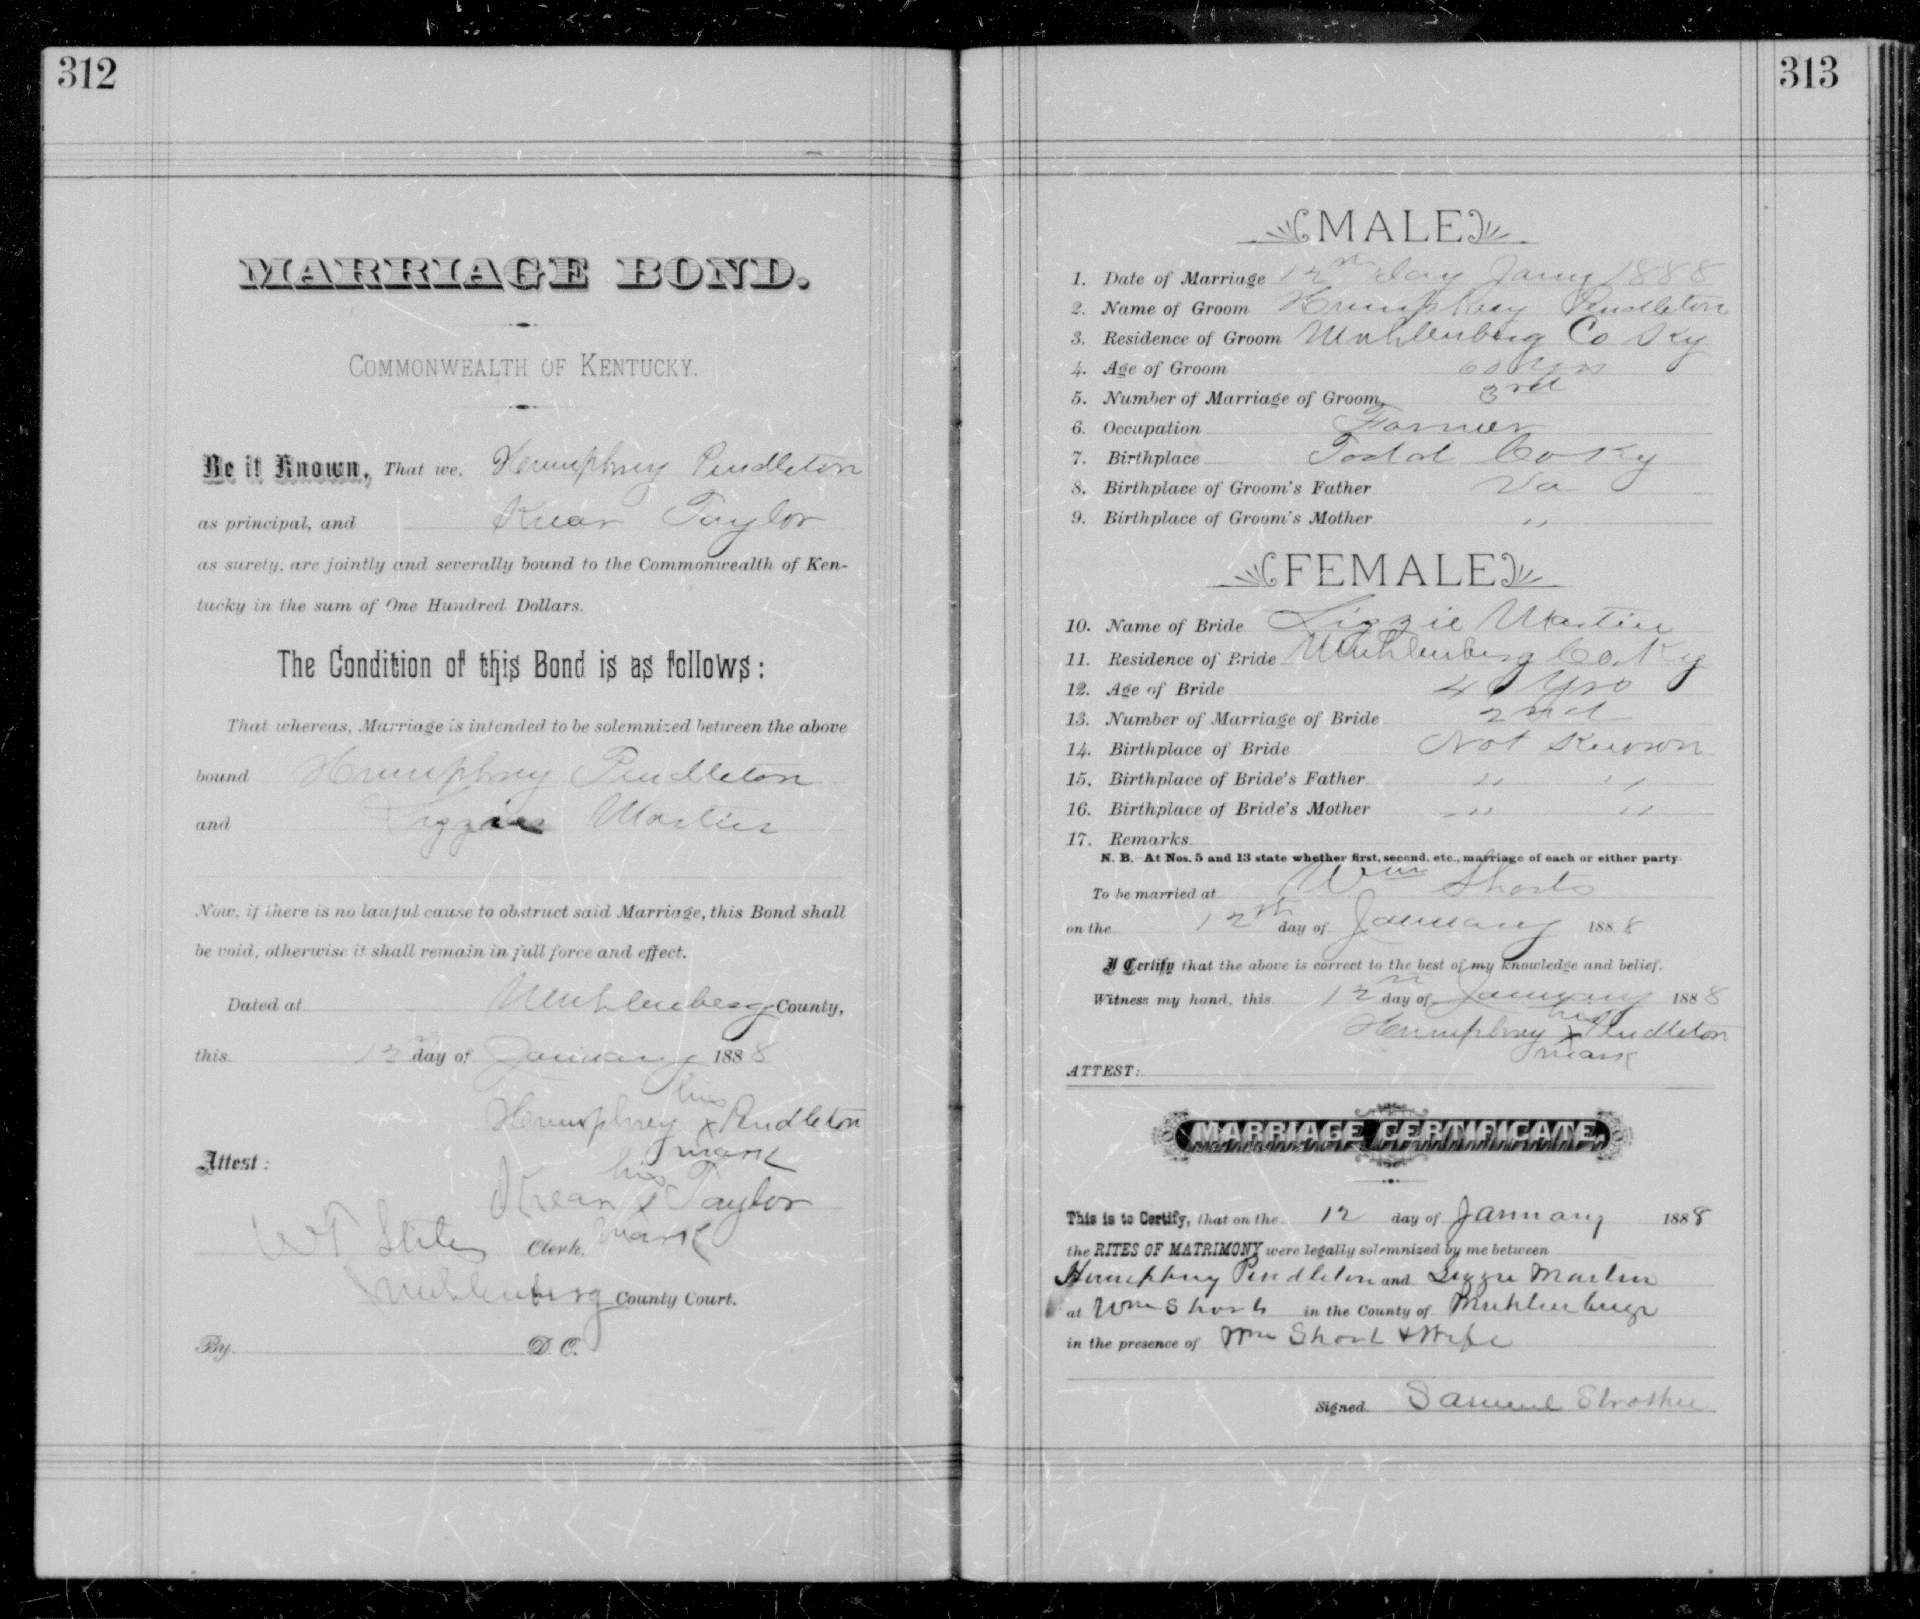 312
MARRIAGE BOND.
COMMONWEALTH OF KENTUCKY.
Be it Known, That we, Humphrey Pendleton
as principal, and Taylor
as surety, are jointly and severally bound to the Commonwealth of Ken-
tucky in the sum of One Hundred Dollars.
The Condition of this Bond is as follows:
That whereas, Marriage is intended to be solemnized between the above
bound Humphrey Pendleton
and Lizzie Martin
Now, if there is no lawful cause to obstruct said Marriage, this Bond shall
be void, otherwise it shall remain in full force and effect.
Dated at Muhlenberg County,
this 12th day of January 1888
his
Humphrey x Pendleton
mark
Attest:
his
x Taylor
mark
WT Stiles Clerk.
Muhlenberg County Court.
By D. C.
313
MALE
1. Date of Marriage 12th day Jany 1888
2. Name of Groom Humphrey Pendleton
3. Residence of Groom Muhlenberg Co Ky
4. Age of Groom 60 Yrs
5. Number of Marriage of Groom 3rd
6. Occupation Farmer
7. Birthplace Todd Co Ky
8. Birthplace of Groom's Father Va
9. Birthplace of Groom's Mother "
FEMALE
10. Name of Bride Lizzie Martin
11. Residence of Bride Muhlenberg Co. Ky
12. Age of Bride Yrs
13. Number of Marriage of Bride 2nd
14. Birthplace of Bride Not Known
15. Birthplace of Bride's Father " "
16. Birthplace of Bride's Mother " "
17. Remarks
N. B. At Nos. 5 and 13 state whether first, second, etc., marriage of each or either party.
To be married at Wm Shorts
on the 12th day of January 1888
I Certify that the above is correct to the best of my knowledge and belief.
Witness my hand, this 12th day of January 1888
his
Humphrey x Pendleton
mark
ATTEST:
MARRIAGE CERTIFICATE.
This is to Certify, that on the 12 day of January 1888
the RITES OF MATRIMONY were legally solemnized by me between
Humphrey Pendleton and Lizzie Martin
at Wm Shorts in the County of Muhlenberg
in the presence of Wm Short & Wife
Signed Samuel Strother